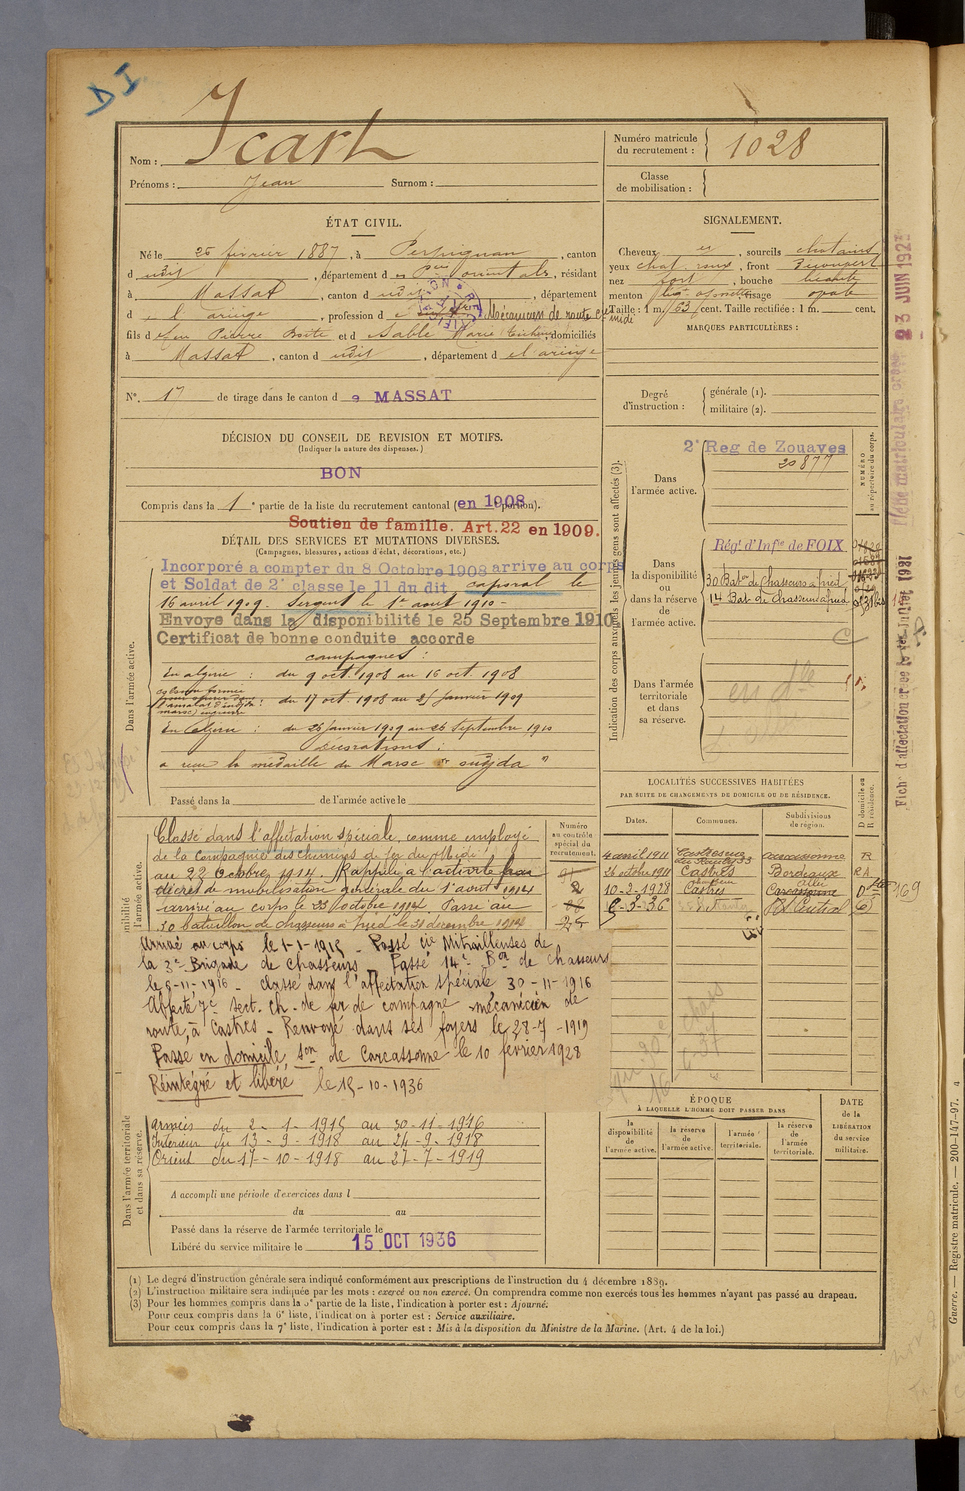 D I
Nom : Icart
Prénoms : Jean Surnom :
Numéro matricule du recrutement : 1028
Classe de mobilisation :
ÉTAT CIVIL.
Né le 25 février 1887, à Perpignan, canton
d udit, département d es Pces orientales, résidant
à Massat, canton d udit, département
d e l'ariège, profession d e Mécanicien de route Cie midi
fils d e feu Pierre Baste et d e Sablé Marie, domiciliés
à Massat, canton d udit, département d e l'ariège
N° 17 de tirage dans le canton d e MASSAT
SIGNALEMENT.
Cheveux, sourcils chatains
yeux chat. roux, front découvert
nez fort, bouche
menton, visage ovale
Taille : 1 m. 63 cent. Taille rectifiée : 1 m. cent.
MARQUES PARTICULIÈRES :
Degré d'instruction : générale (1).
militaire (2).
DÉCISION DU CONSEIL DE REVISION ET MOTIFS.
(Indiquer la nature des dispenses.)
BON
Compris dans la 1e partie de la liste du recrutement cantonal (en 1908 portion).
Soutien de famille. Art. 22 en 1909.
DÉTAIL DES SERVICES ET MUTATIONS DIVERSES.
(Campagnes, blessures, actions d'éclat, décorations, etc.)
Dans l'armée active.
Incorporé a compter du 8 Octobre 1908 arrive au corps
et Soldat de 2e classe le 11 du dit caporal le
16 avril 1909. Sergent le 1er aout 1910.
Envoye dans la disponibilité le 25 Septembre 1910
Certificat de bonne conduite accorde
campagnes :
En algérie : du 9 oct. 1908 au 16 oct. 1908
: du 17 oct. 1908 au 25 Janvier 1909
En algérie : du 26 Janvier 1909 au 26 Septembre 1910
Décorations :
a reçu la médaille du Maroc "oudjda"
Passé dans la de l'armée active le
Indication des corps auxquels les jeunes gens sont affectés (3).
NUMÉRO au répertoire du corps.
Dans l'armée active.
2e Reg de Zouaves
20877
Dans la disponibilité ou dans la réserve de l'armée active.
Régt d'Infie de FOIX
30 Baton de Chasseurs à pied
14 Bat de chasseurs à pied
Dans l'armée territoriale et dans sa réserve.
LOCALITÉS SUCCESSIVES HABITÉES
PAR SUITE DE CHANGEMENTS DE DOMICILE OU DE RÉSIDENCE.
Dates. Communes. Subdivisions de région. D domicile ou R résidence.
4 avril 1911 carcassonne R
26 octobre 1911 Castres Bordeaux R A
10-2-1928 Castres Carcassonne D
6-3-36 Rt Central
169
Numéro au contrôle spécial du recrutement.
Classé dans l'affectation spéciale, comme employé
de la Compagnie des chemins de fer du Midi
au 22 Octobre 1914. Rappelé à l'activité par
décret de mobilisation générale du 1er aout 1914
arrivé au corps le 23 octobre 1914. Passé au
30 Bataillon de chasseurs à pied le 31 decembre 1914
Arrivé au corps le 1-1-1915 - Passé Cie Mitrailleuses de
la 3e Brigade de chasseurs - Passé 14e Bon de chasseurs
le 5-11-1916 - classé dans l'affectation spéciale 30-11-1916
Affecté 7e sect. ch. de fer de campagne mécanicien de
route, à Castres - Renvoyé dans ses foyers le 28-7-1919
Passé en domicile son de Carcassonne le 10 février 1928
Réintégré et libéré le 15-10-1936
Dans l'armée territoriale et dans sa réserve.
armées du 2-1-1915 au 30-11-1916
Intérieur du 13-9-1918 au 24-9-1918
Orient du 17-10-1918 au 27-7-1919
A accompli une période d'exercices dans l
du au
Passé dans la réserve de l'armée territoriale le
Libéré du service militaire le 15 OCT 1936
ÉPOQUE
À LAQUELLE L'HOMME DOIT PASSER DANS
la disponibilité de l'armée active.
la réserve de l'armée active.
l'armée territoriale.
la réserve de l'armée territoriale.
DATE de la LIBÉRATION du service militaire.
(1) Le degré d'instruction générale sera indiqué conformément aux prescriptions de l'instruction du 4 décembre 1889.
(2) L'instruction militaire sera indiquée par les mots : exercé ou non exercé. On comprendra comme non exercés tous les hommes n'ayant pas passé au drapeau.
(3) Pour les hommes compris dans la 5e partie de la liste, l'indication à porter est : Ajourné.
Pour ceux compris dans la 6e liste, l'indication à porter est : Service auxiliaire.
Pour ceux compris dans la 7e liste, l'indication à porter est : Mis à la disposition du Ministre de la Marine. (Art. 4 de la loi.)
Fiche matriculaire créée 23 JUIN 192
Guerre. — Registre matricule. — 200-147-97. 4